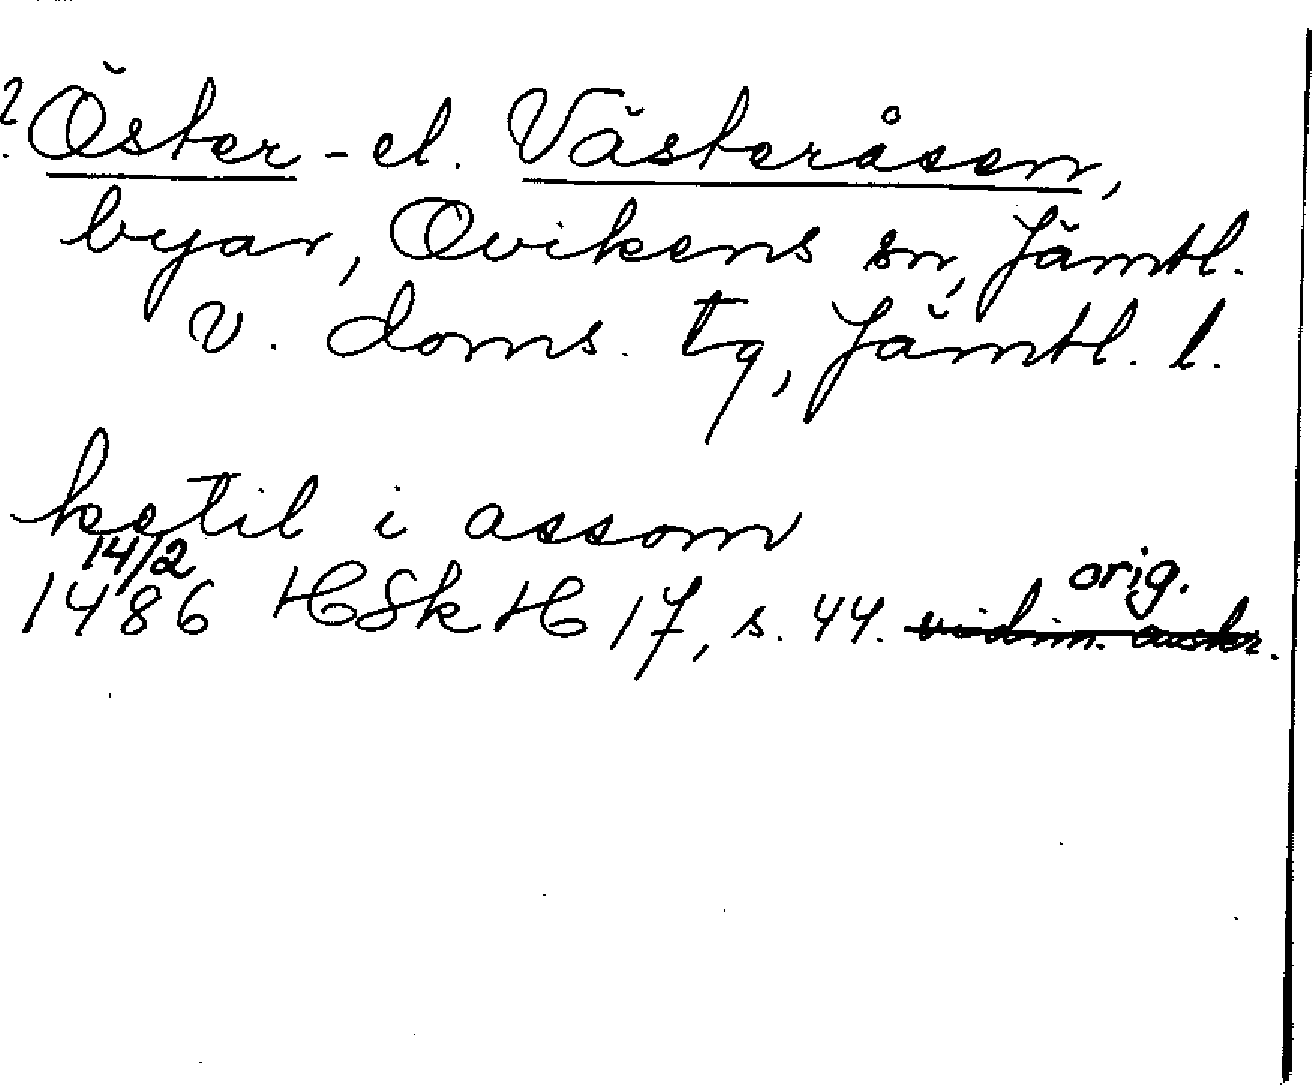 ? Öster- el. Västeråsen,
byar, Ovikens sn, Jämtl.
v. doms. tg, Jämtl. l.
ketil i assom
14/2
orig.
1486 HSkH 17, s. 44. vidim. avskr.